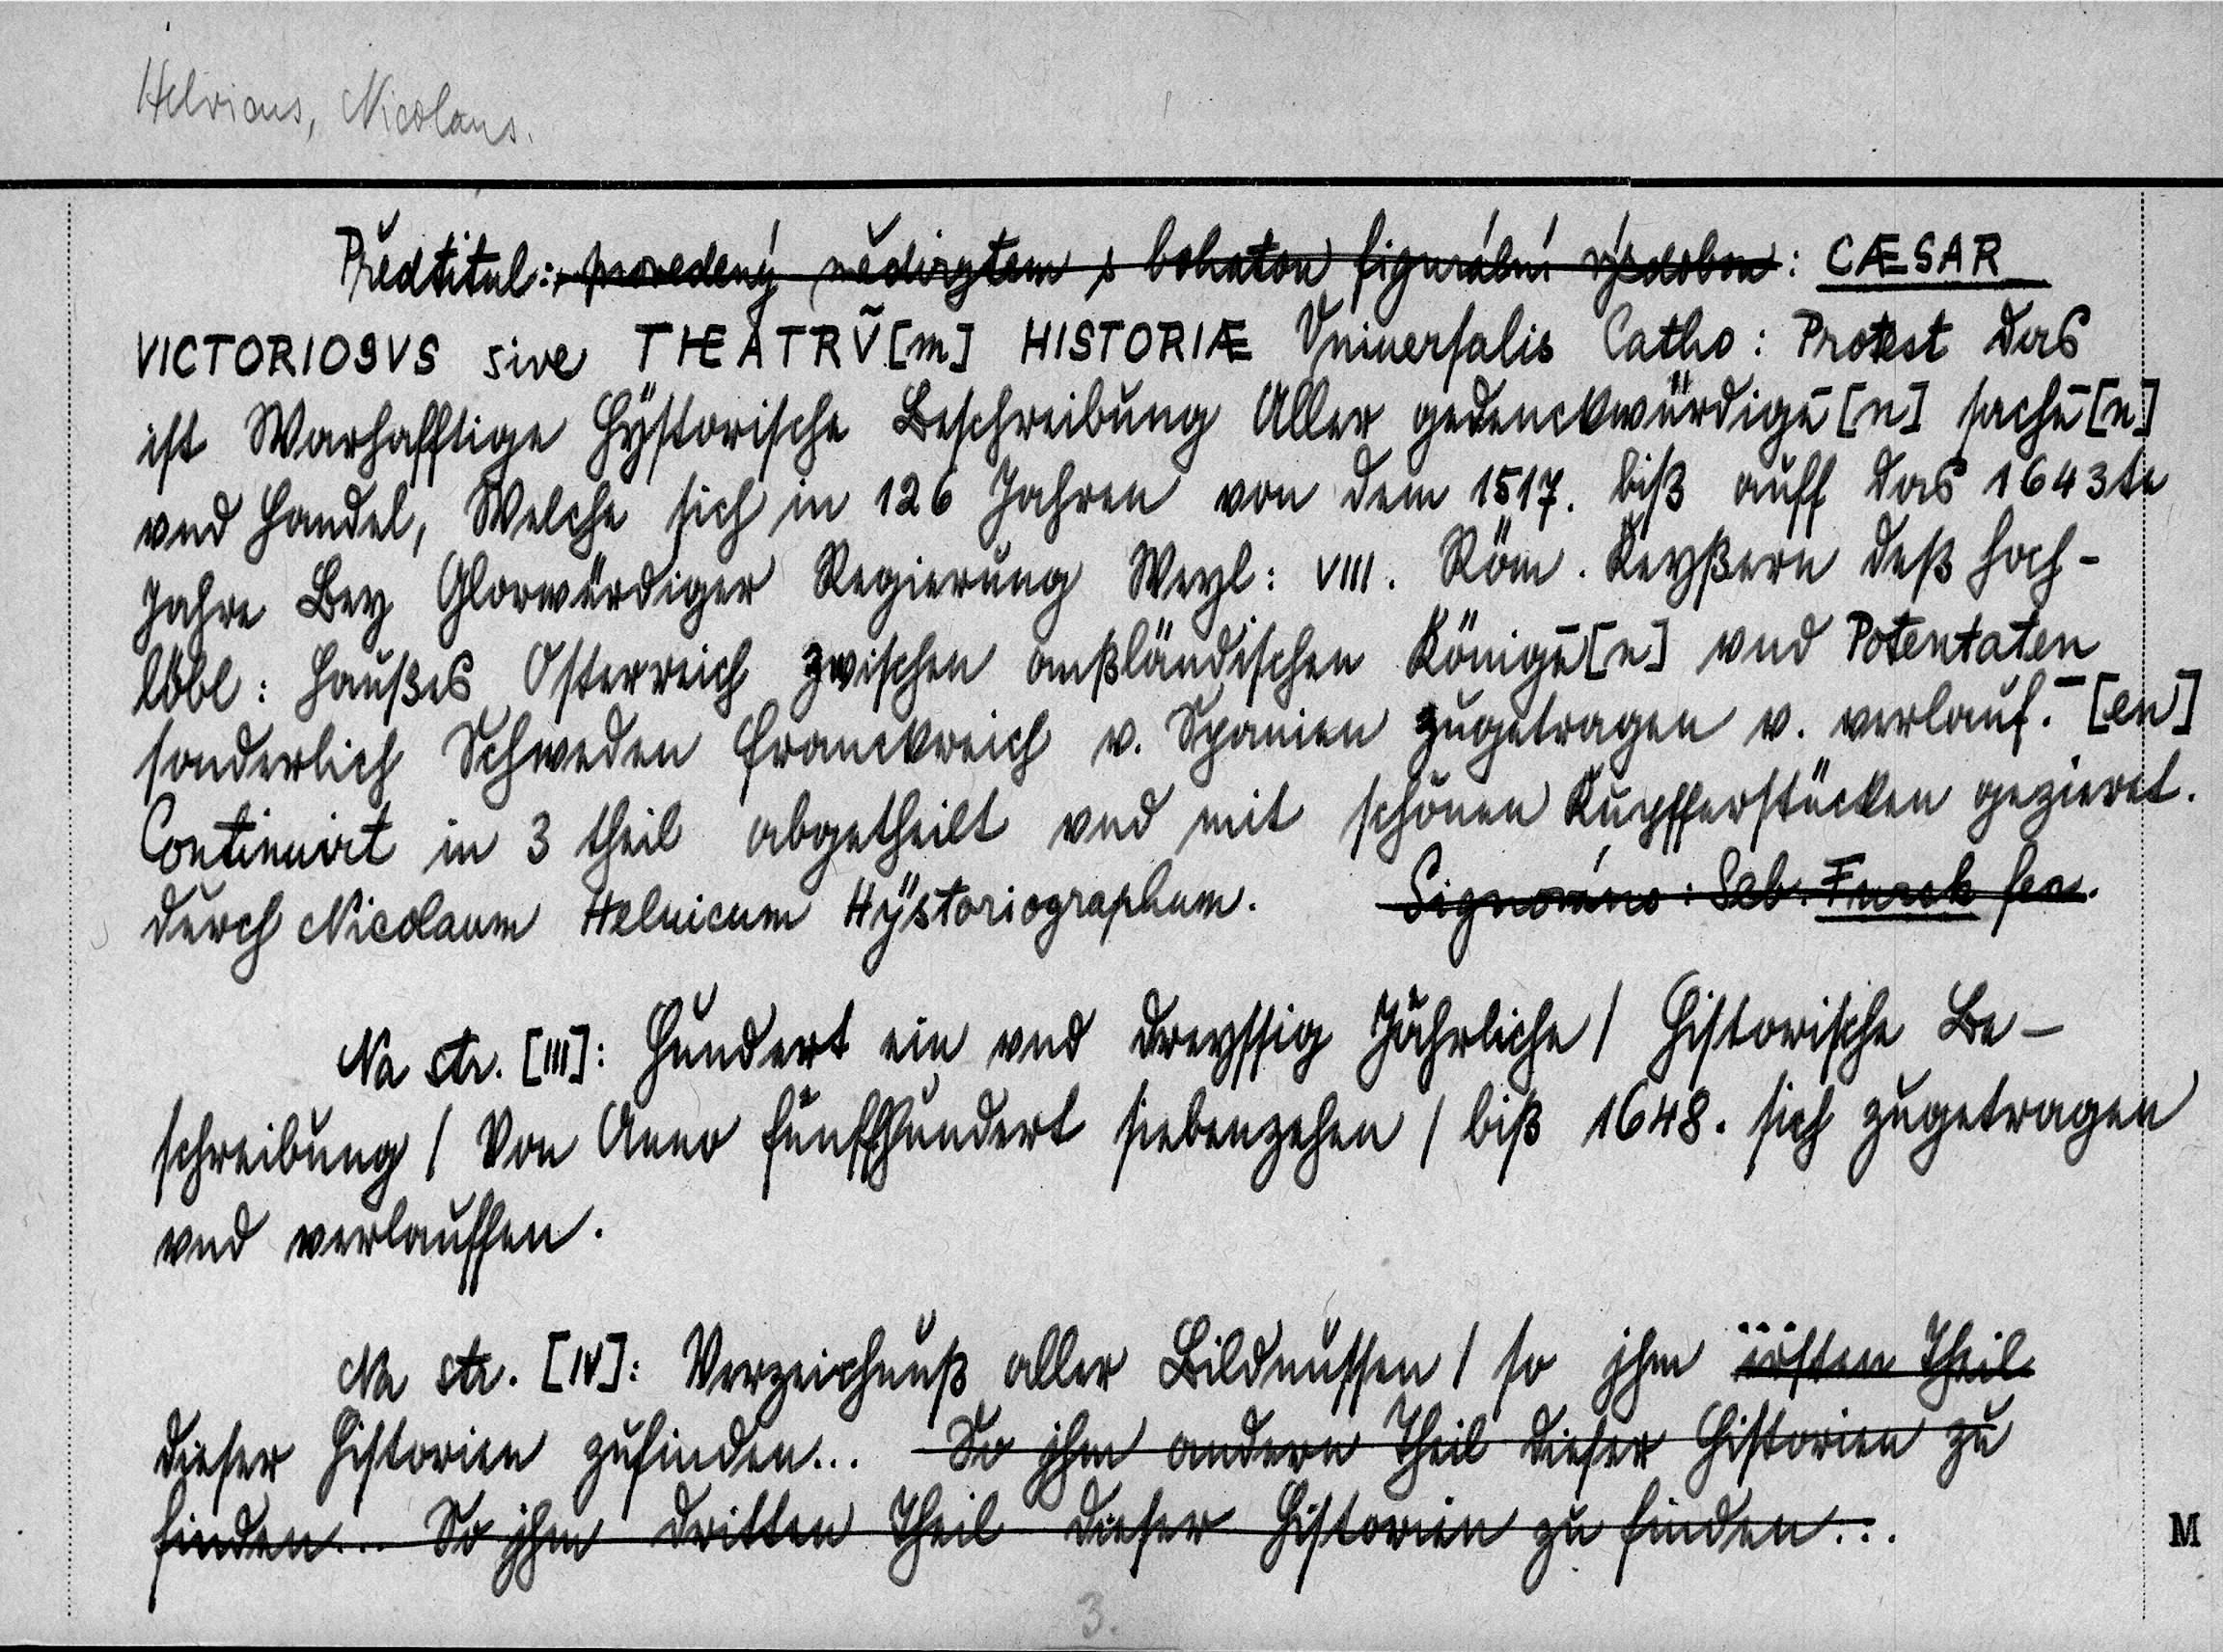 Helvicus, Nicolaus.
Předtitul: provedený mědirytem s bohatou figurální výzdobou: CÆSAR
VICTORIOSVS sive THEATRṼ[m] HISTORIÆ Vniuersalis Catho: Protest das
ist Warhafftige Hÿstorische Beschreibung Aller gedenckwürdigē[n] sachē[n]
vnd Handel, Welche sich in 126 Jahren von dem 1517. biß auff das 1643te
Jahre Bey Glorwürdiger Regierung Weyl: VIII. Röm. Keyßern deß Hoch-
löbl: Haußes Osterreich zwischen außländischen Königē[n] vnd Potentaten
sonderlich Schweden Franckreich v. Spanien zugetragen v. verlauf.̄ [en]
Continuirt in 3 theil abgetheilt vnd mit schönen Kupfferstücken gezieret.
durch Nicolaum Heluicum Hÿstoriographum. Signováno: Seb. Furck fec.
Na str. [III]: Hundert ein vnd dreyssig Jährliche / Historische Be-
schreibung / Von Anno fünffhundert siebenzehen / biß 1648. sich zugetragen
vnd verlauffen.
Na str. [IV]: Verzeichnuß aller Bildnussen / so jhm ersten Theil
dieser Historien zufinden... So jhm andern Theil dieser Historien zu
finden... So jhm dritten Theil dieser Historien zu finden...
M
3.